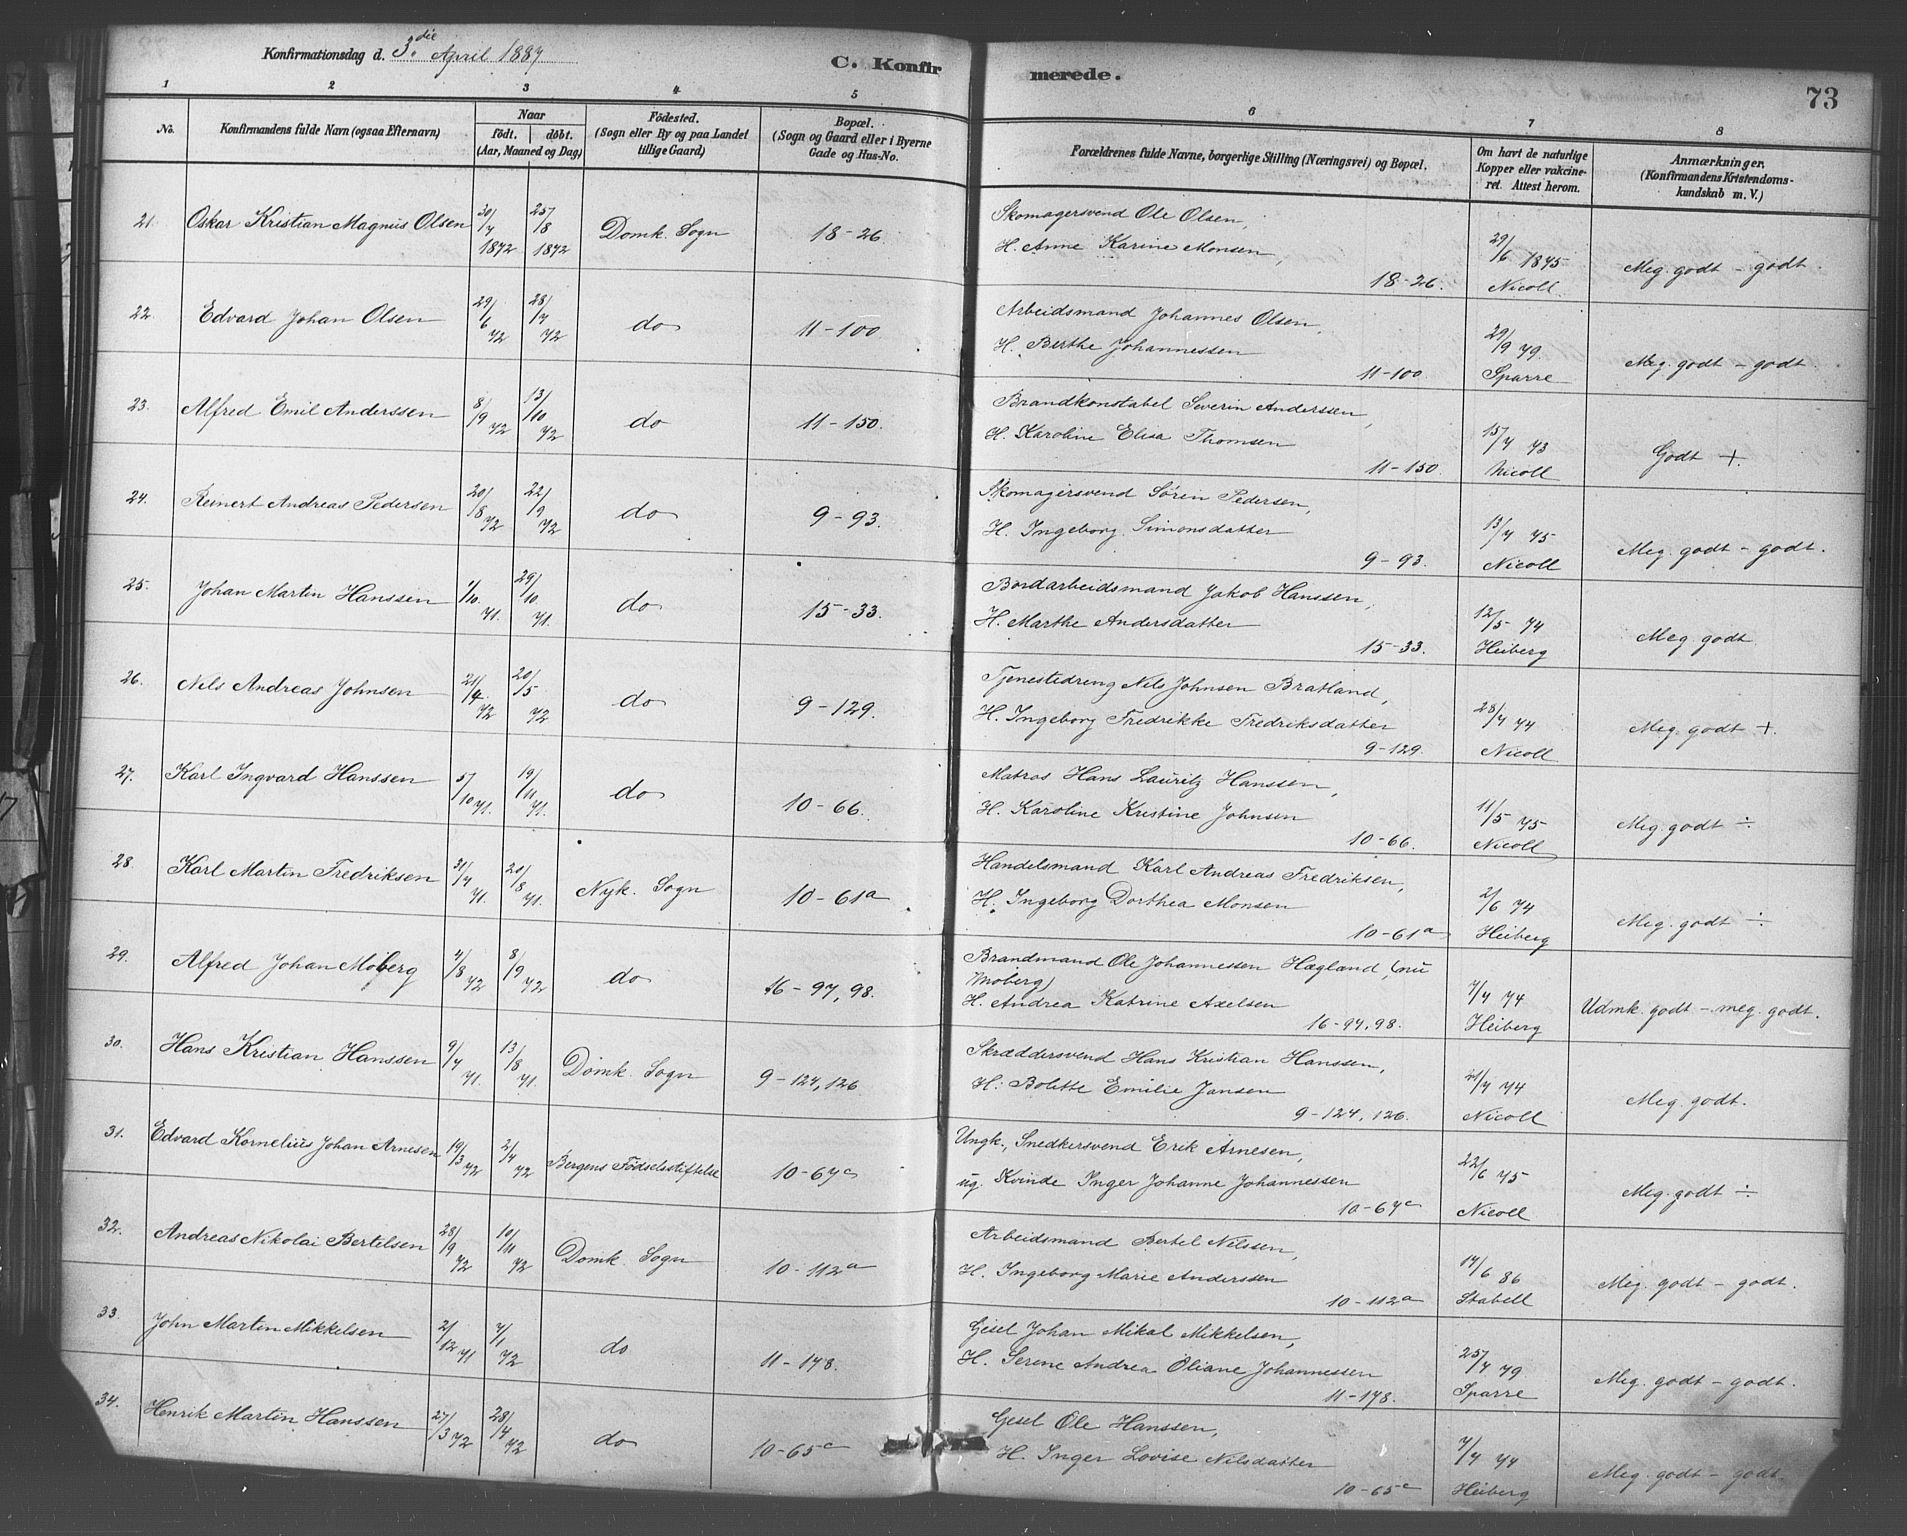 Konfirmationsdag d. 3.die April 1887
C. Konfirmerede.
73
1 2 3 4 5 6 7 8
No.
Konfirmandens fulde Navn (ogsaa Efternavn)
Naar født. døbt. (Aar, Maaned og Dag)
Fødested. (Sogn eller By og paa Landet tillige Gaard)
Bopæl. (Sogn og Gaard eller i Byerne Gade og Hus-No.
Forældrenes fulde Navne, borgerlige Stilling (Næringsvei) og Bopæl.
Om havt de naturlige Kopper eller vakcineret. Attest herom.
Anmærkninger. (Konfirmandens Kristendomskundskab m. V.)
21. Oskar Kristian Magnus Olsen 20/7 1872 25/8 1872 Domk. Sogn 18-26 Skomagersvend Ole Olsen,
H. Anne Karine Monsen,
18-26. 29/6 1875 Nicoll. Meg. godt - godt.
22. Edvard Johan Olsen 29/6 72 28/7 72 do 11-100 Arbeidsmand Johannes Olsen,
H. Berthe Johannessen
11-100. 29/9 79. Sparre Meg. godt - godt.
23. Alfred Emil Anderssen 8/9 72 13/10 72 do 11-150. Brandkonstabel Severin Anderssen,
H. Karoline Elisa Thomsen
11-150. 15/7 73 Nicoll Godt +.
24. Reinert Andreas Pedersen 20/8 72 22/9 72 do 9-93. Skomagersvend Sören Pedersen,
H. Ingeborg Simonsdatter
9-93. 13/7 75 Nicoll Meg. godt - godt.
25. Johan Martin Hanssen 1/10 71. 29/10 71. do 15-33. Bordarbeidsmand Jakob Hanssen,
H. Marthe Andersdatter
15-33. 12/5 74 Heiberg Meg. godt.
26. Nils Andreas Johnsen 21/4 72 20/5 72 do 9-129. Tjenestedreng Nils Johnsen Bratland,
H. Ingeborg Fredrikke Fredriksdatter
9-129. 28/7 74 Nicoll Meg. godt +.
27. Karl Ingvard Hanssen 5/10 71. 19/11 71. do 10-66. Matros Hans Lauritz Hanssen,
H. Karoline Kristine Johnsen
10-66. 11/5 75 Nicoll Meg. godt ÷
28. Karl Martin Fredriksen 31/7 71. 20/8 71. Nyk. Sogn 10-61a Handelsmand Karl Andreas Fredriksen,
H. Ingeborg Dorthea Monsen
10-61a 2/6 74 Heiberg Meg. godt ÷
29. Alfred Johan Moberg 4/8 72 8/9 72 do 16-97, 98. Brandmand Ole Johannessen Hægland, (nu
Moberg)
H. Andrea Katrine Axelsen
16-97, 98. 7/7 74 Heiberg Udmk. godt - meg. godt.
30. Hans Kristian Hanssen 9/7 71. 13/8 71. Domk. Sogn 9-124, 126 Skræddersvend Hans Kristian Hanssen,
H. Bolette Emilie Jansen
9-124, 126. 21/7 74 Nicoll Meg. godt.
31. Edvard Kornelius Johan Arnesen 19/3 72 2/4 72 Bergens Födselsstiftelse 10-67c Ungk., Snedkersvend Erik Arnesen,
ug. Kvinde Inger Johanne Johannessen
10-67c 22/6 75 Nicoll Meg. godt ÷
32. Andreas Nikolai Bertelsen 28/9 72 10/11 72 Domk. Sogn 10-112a Arbeidsmand Bertel Nilssen,
H. Ingeborg Marie Anderssen
10-112a 14/6 86 Stabell Meg. godt - godt.
33. John Martin Mikkelsen 2/12 71 7/1 72 do 11-178. Gesel Johan Mikal Mikkelsen,
H. Serene Andrea Oliane Johannessen
11-178. 25/7 79 Sparre Meg. godt - godt.
34. Henrik Martin Hanssen 27/3 72 28/4 72 do 10-65c Gesel Ole Hanssen,
H. Inger Lovise Nilsdatter
10-65c 7/7 74 Heiberg Meg. godt - godt.